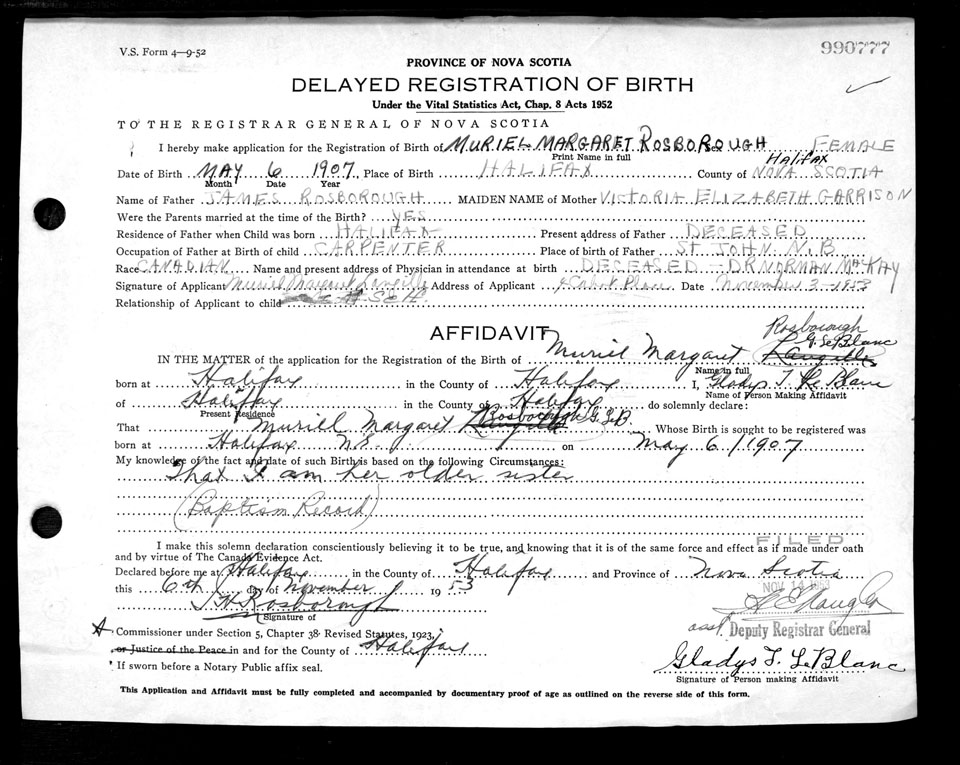 V.S. Form 4—9-52
990777
PROVINCE OF NOVA SCOTIA
DELAYED REGISTRATION OF BIRTH
Under the Vital Statistics Act, Chap. 8 Acts 1952
TO THE REGISTRAR GENERAL OF NOVA SCOTIA
I hereby make application for the Registration of Birth of MURIEL MARGARET ROSBOROUGH FEMALE
Print Name in full Halifax
Date of Birth MAY 6 1907 Place of Birth HALIFAX County of NOVA SCOTIA
Month Date Year
Name of Father JAMES ROSBOROUGH MAIDEN NAME of Mother VICTORIA ELIZABETH GARRISON
Were the Parents married at the time of the Birth? YES
Residence of Father when Child was born HALIFAX Present address of Father DECEASED
Occupation of Father at Birth of child CARPENTER Place of birth of Father ST JOHN N.B.
Race CANADIAN Name and present address of Physician in attendance at birth DECEASED - DR NORMAN MacKAY
Signature of Applicant Muriel Margaret Langille Address of Applicant Place Date November 3-1953
Relationship of Applicant to child Self
AFFIDAVIT
Rosborough
G. LeBlanc
IN THE MATTER of the application for the Registration of the Birth of Muriel Margaret Langille
Name in full
born at Halifax in the County of Halifax I, Gladys T. LeBlanc
Name of Person Making Affidavit
of Halifax in the County of Halifax do solemnly declare:
Present Residence
That Muriel Margaret Langille Rosborough G. LeB. Whose Birth is sought to be registered was
born at Halifax N.S. on May 6/1907
My knowledge of the fact and date of such Birth is based on the following Circumstances:
That I am her older sister
(Baptism Record)
FILED
I make this solemn declaration conscientiously believing it to be true, and knowing that it is of the same force and effect as if made under oath
and by virtue of The Canada Evidence Act.
Declared before me at Halifax in the County of Halifax and Province of Nova Scotia
this 6th day of November 1953
NOV 14 1953
J H Rosborough
Signature of
asst. Deputy Registrar General
A Commissioner under Section 5, Chapter 38 Revised Statutes, 1923,
or Justice of the Peace in and for the County of Halifax
If sworn before a Notary Public affix seal.
Gladys T. LeBlanc
Signature of Person making Affidavit
This Application and Affidavit must be fully completed and accompanied by documentary proof of age as outlined on the reverse side of this form.